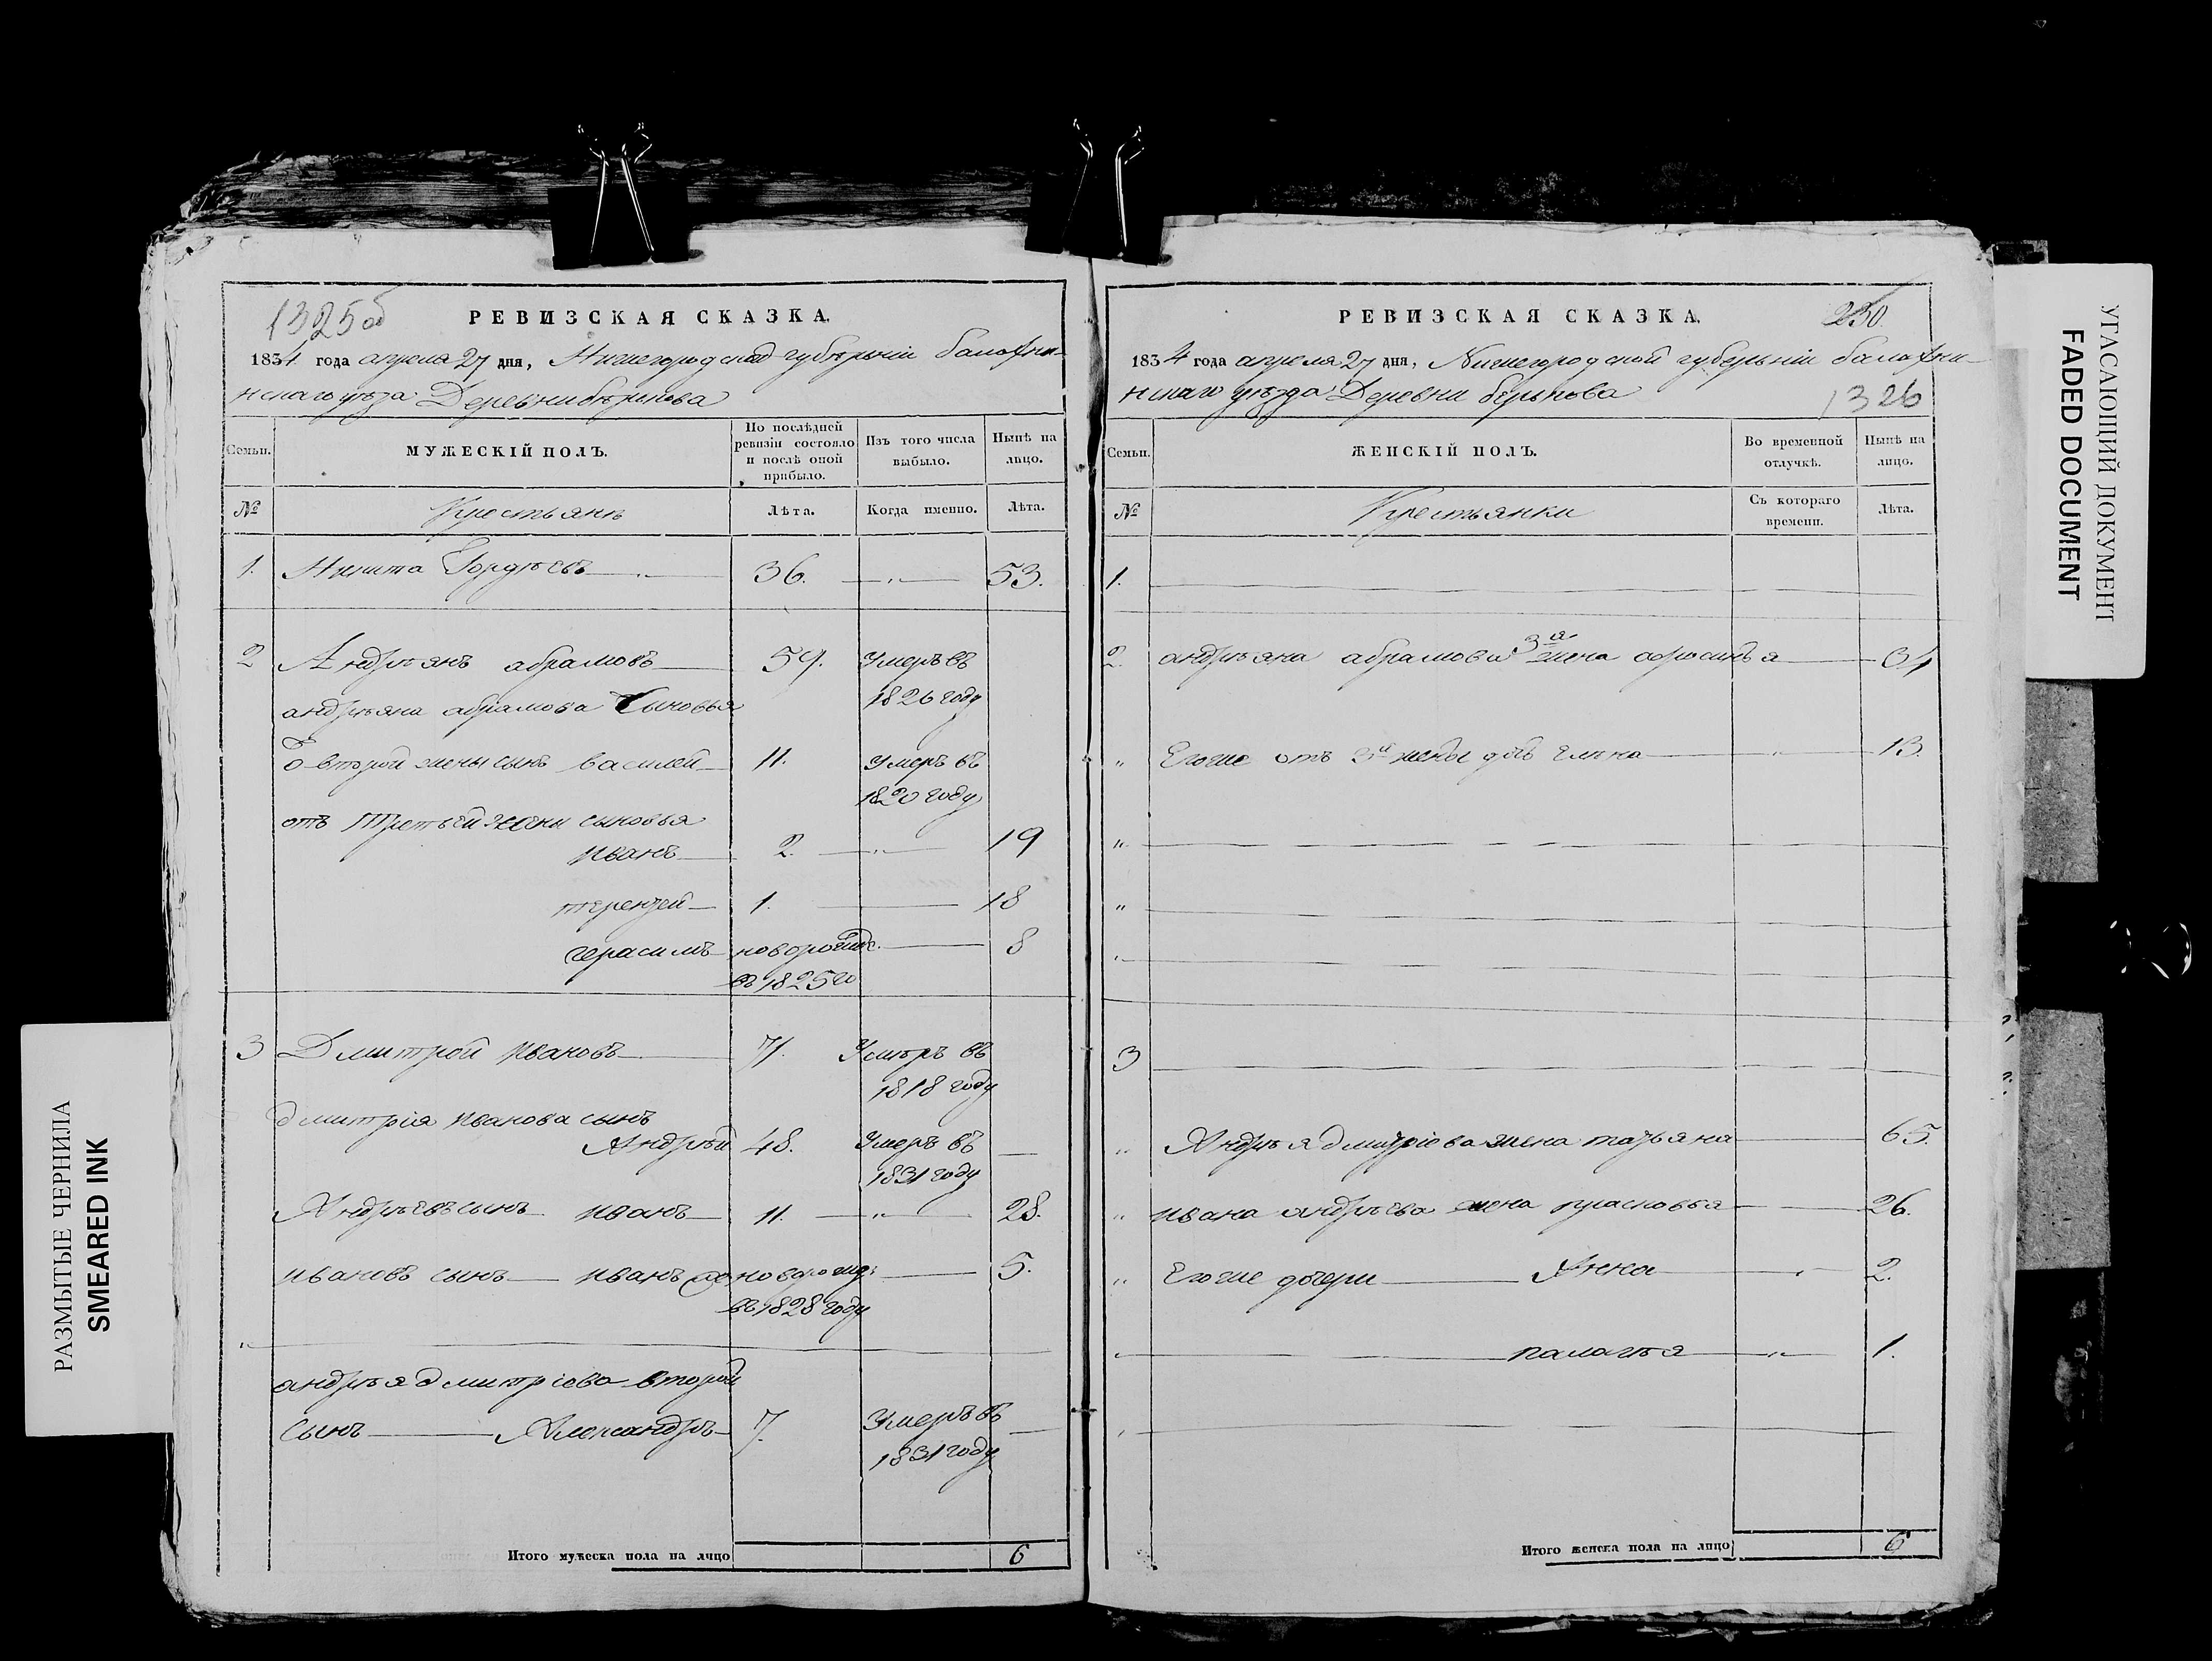 1325об
РЕВИЗСКАЯ СКАЗКА.
1834 года апреля 27 дня, Нижегородской губернии балахни-
нскаго уезда Деревни берькова
Семьи.
МУЖЕСКІЙ ПОЛЪ.
По послѣдней ревизіи состояло и послѣ оной прибыло.
Изъ того числа выбыло.
Нынѣ на лицо.
№
Крестьянѣ
Лѣта.
Когда именно.
Лѣта.
1. Никита Гордѣевъ 36. „ 53.
2 Андрѣянъ абрамовъ 59. Умеръ въ
1826 году
андрѣяна абрамова Сыновья
о второй жены сынъ василей 11. Умеръ въ
1820 году
отъ третьей жены сыновья
иванъ 2. „ 19
терентей 1. 18
герасимъ новорожд. 8
въ 1825 го
3 Дмитрой ивановъ 71. Умѣръ въ
1818 году
дмитрія иванова сынъ
Андрѣй 48. Умеръ въ
1831 году
Андрѣевъ сынъ иванъ 11. „ 28.
ивановъ сынъ иванъ новорожд: 5.
въ 1828 году
„
андрѣя дмитріева второй
сынъ Александръ 7. Умеръ въ
1831 году
Итого мужеска пола на лицо 6
РЕВИЗСКАЯ СКАЗКА.
230.
1834 года апреля 27 дня, Нижегородской губерьніи балахни-
нскаго уѣзда Деревни берькова
1326
Семьи.
ЖЕНСКІЙ ПОЛЪ.
Во временной отлучкѣ.
Нынѣ на лицо.
№
Крестьянки
Съ котораго времени.
Лѣта.
1.
2. андрѣяна абрамова 3я жена афросинья 34
„ Егоже отъ 3й жены дочь елена „ 13.
„
„
„
3
„ Андрѣя дмитріева жена татьяна 65.
„ ивана андрѣева жена прасковья 26.
„ Егоже дочери Анна „ 2.
„ палагѣя „ 1.
„
Итого женска пола на лицо 6
УГАСАЮЩИЙ ДОКУМЕНТ
FADED DOCUMENT
РАЗМЫТЫЕ ЧЕРНИЛА
SMEARED INK